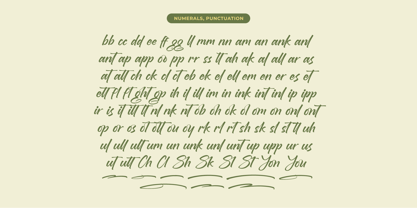 NUMERALS, PUNCTUATION
bb cc dd ee ff gg ll mm nn am an ank anl
ant ap app oo pp rr ss tt ah ak al all ar as
at att ch ck cl ct eb ek el ell em en er es et
ett fl ft ght gp ih il ill im in ink int inl ip ipp
ir is it ill tt nl nk nt ob oh ok ol om on onl ont
op or os ot ott ou oy rk rl rt sh sk sl st tt uh
ul ull ult um un unk unl unt up upp ur us
ut utt Ch Cl Sh Sk Sl St Yon You